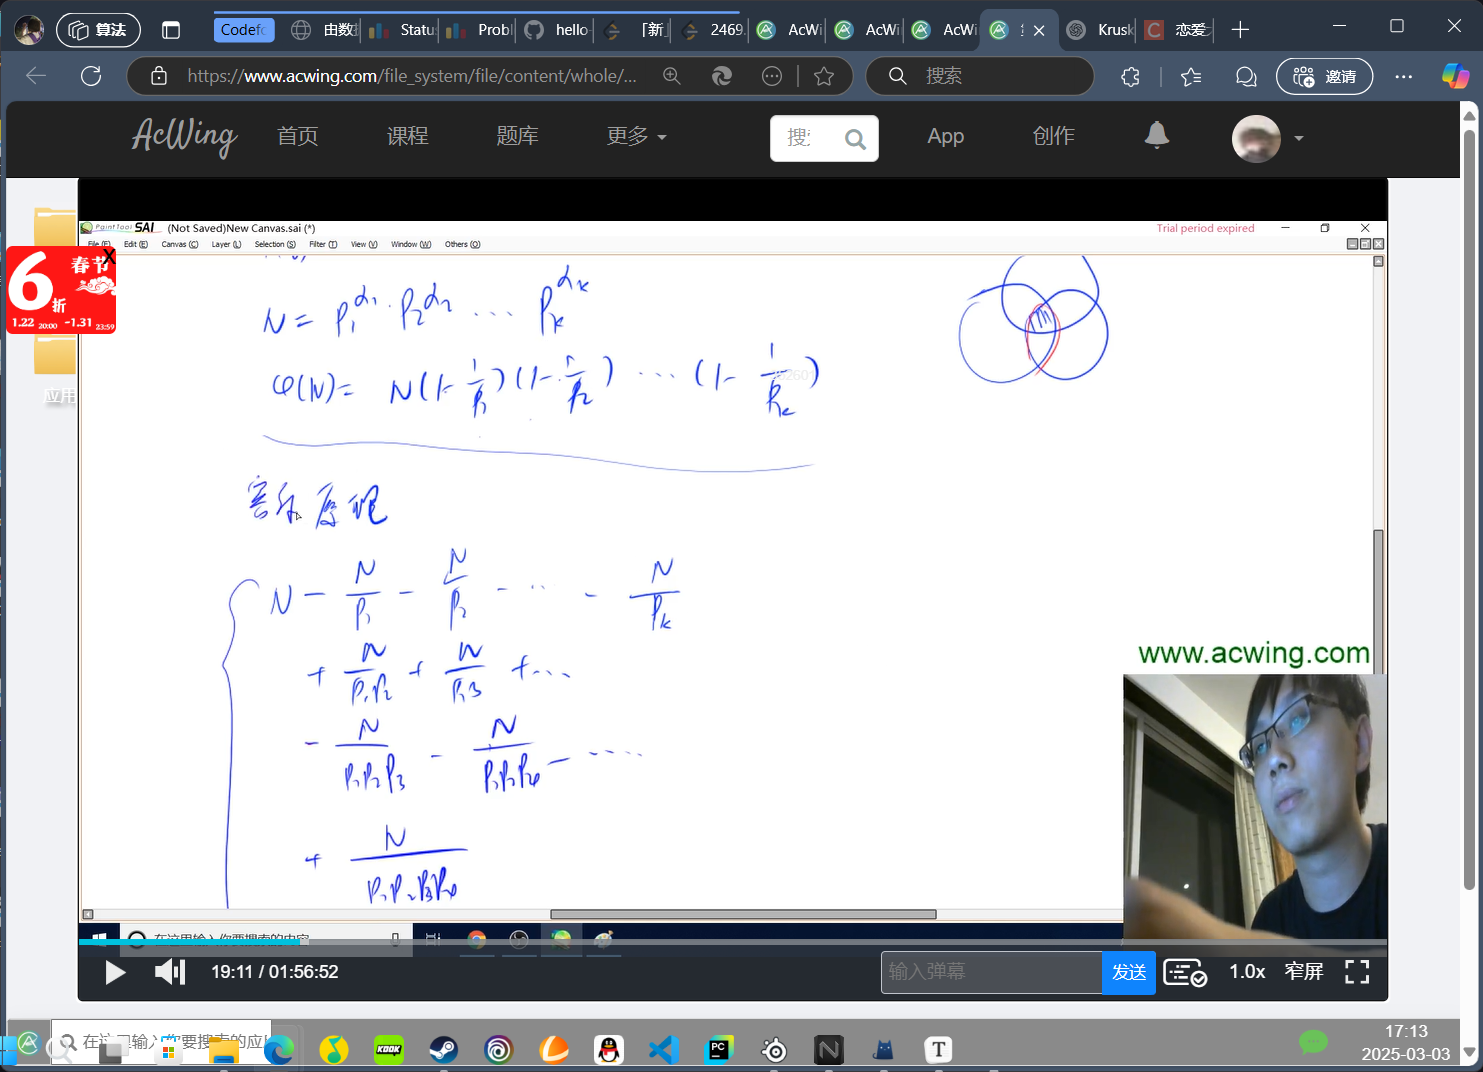 算法
Codefc
由数
Statu
Probl
hello-
「新」
2469.
AcWi
AcWi
AcWi
Krusk
恋爱
https://www.acwing.com/file_system/file/content/whole/...
搜索
邀请
AcWing
首页
课程
题库
更多
搜
App
创作
PaintTool SAI (Not Saved)New Canvas.sai (*)
Trial period expired
File (F) Edit (E) Canvas (C) Layer (L) Selection (S) Filter (T) View (V) Window (W) Others (O)
X
春节
6折
1.22 20:00 -1.31 23:59
应用
N = P₁^α₁ · P₂^α₂ ... Pₖ^αₖ
φ(N) = N(1-1/P₁)(1-1/P₂) ... (1-1/Pₖ)
容斥原理
N - N/P₁ - N/P₂ - ... - N/Pₖ
+ N/P₁P₂ + N/P₁P₃ + ...
- N/P₁P₂P₃ - N/P₁P₂P₄ - ....
+ N/P₁P₂P₃P₄
www.acwing.com
在这里输入你要搜索的内容
19:11 / 01:56:52
输入弹幕
发送
1.0x
窄屏
在这里输入你要搜索的应
KOOK
PC
N
T
17:13
2025-03-03